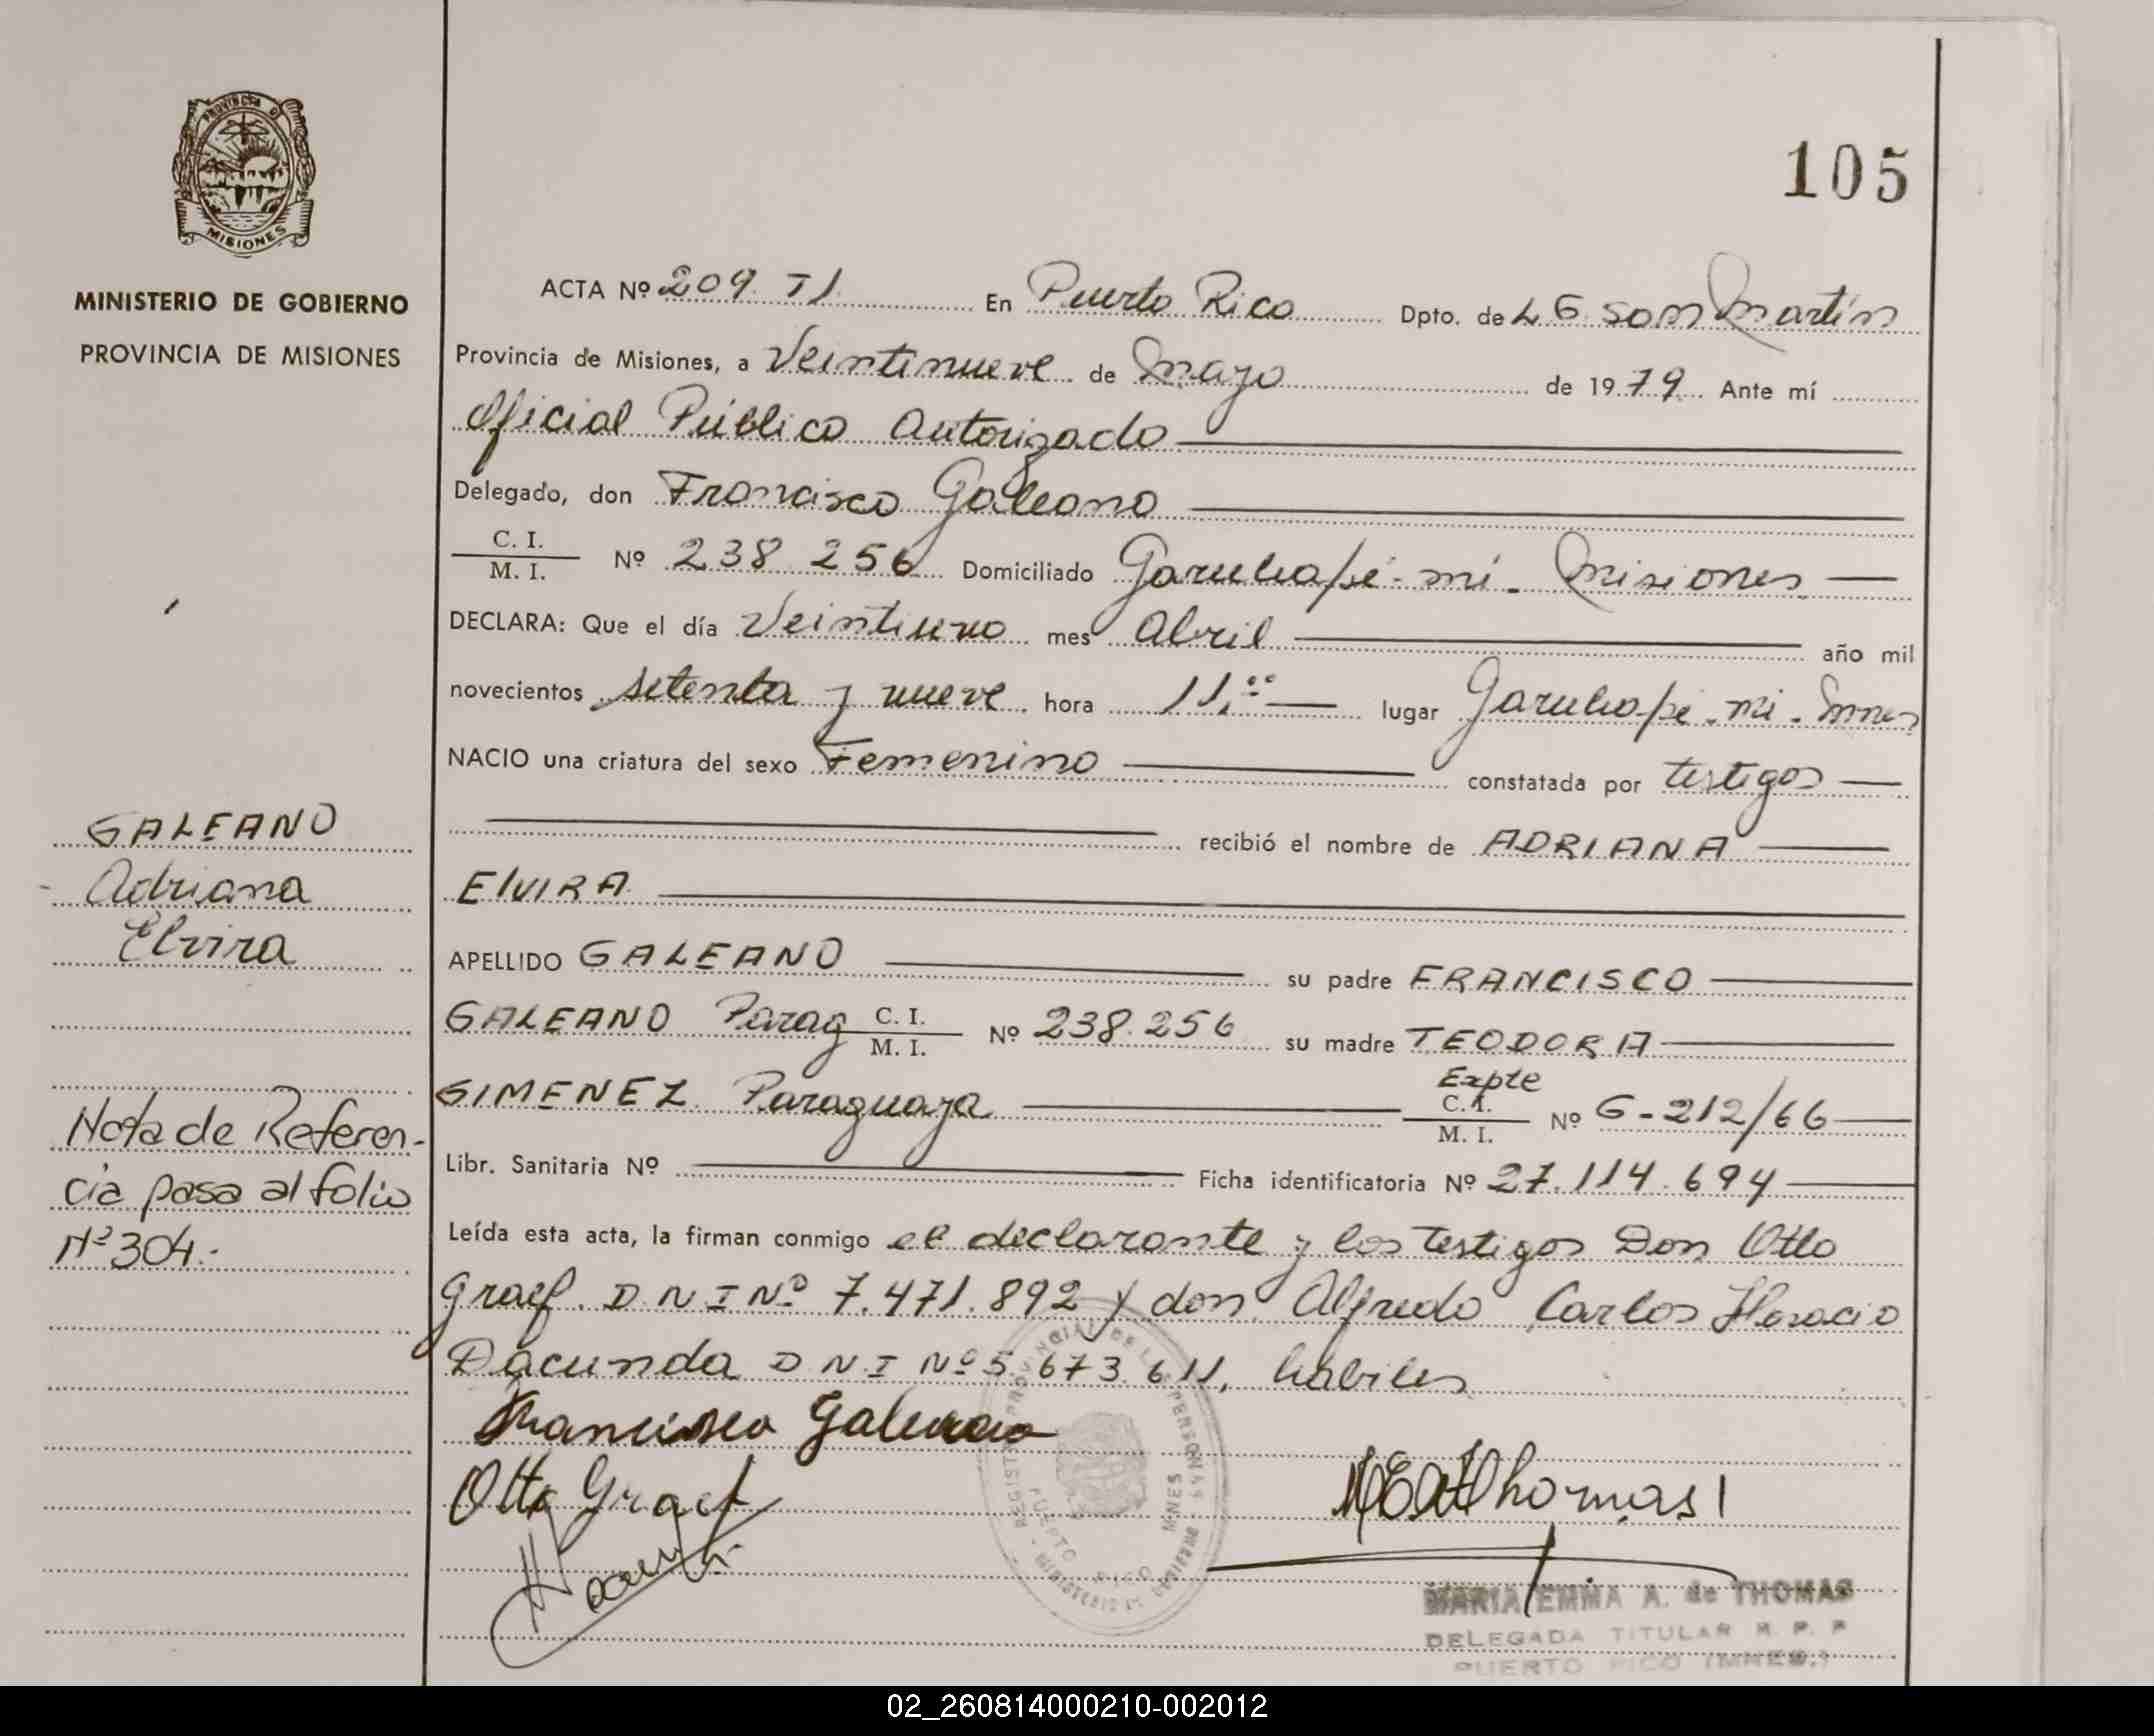 PROVINCIA D
MISIONES
MINISTERIO DE GOBIERNO
PROVINCIA DE MISIONES
105
ACTA Nº 209 TI En Puerto Rico Dpto. de L G San Martín
Provincia de Misiones, a Veintinueve de Mayo de 1979 Ante mí
Oficial Público Autorizado
Delegado, don Francisco Galeano
C. I.
M. I. Nº 238 256 Domiciliado Garuhapé-mí-Misiones
DECLARA: Que el día Veintiuno mes Abril año mil
novecientos setenta y nueve hora 11,00 lugar Garuhapé-mi-Mnes
NACIO una criatura del sexo Femenino constatada por testigos
recibió el nombre de ADRIANA
ElVIRA
APELLIDO GALEANO su padre FRANCISCO
GALEANO Parag C. I. M. I. Nº 238.256 su madre TEODORA
GIMENEZ Paraguaya Expte C.I. M. I. Nº G-212/66
Libr. Sanitaria Nº Ficha identificatoria Nº 27.114.694
Leída esta acta, la firman conmigo el declarante y los testigos Don Otto
Graef. D N I Nº 7.471.892 y don Alfredo Carlos Horacio
Dacunda D N I Nº 5 673 611, habiles
GALEANO
Adriana
Elvira
Nota de Referen-
cia pasa al folio
Nº 304.-
Francisco Galeano
Otto Graef
MEAdThomas
REGISTRO PROVINCIAL DE LAS PERSONAS
PUERTO RICO MNES
MINISTERIO DE GOBIERNO
MARIA EMMA A. de THOMAS
DELEGADA TITULAR R. P. P
PUERTO RICO (MNES.)
02_260814000210-002012